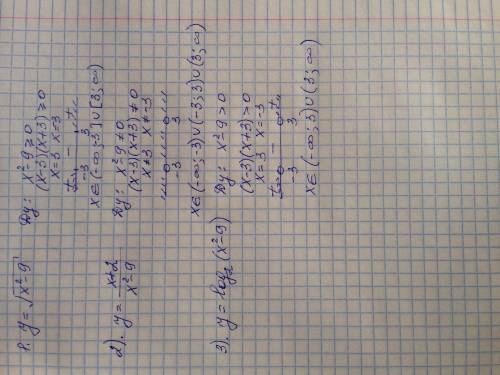 1. y = √(x²-9)
Dy: x²-9 ≥ 0
(x-3)(x+3) ≥ 0
x=3 x=-3
+ - +
-3 3
x∈(-∞;-3]∪[3;∞)
2). y = (x+2)/(x²-9)
Dy: x²-9 ≠ 0
(x-3)(x+3) ≠ 0
x≠3 x≠-3
-3 3
x∈(-∞;-3)∪(-3;3)∪(3;∞)
3). y = log₂(x²-9)
Dy: x²-9 > 0
(x-3)(x+3) > 0
x=3 x=-3
+ - +
-3 3
x∈(-∞;3)∪(3;∞)